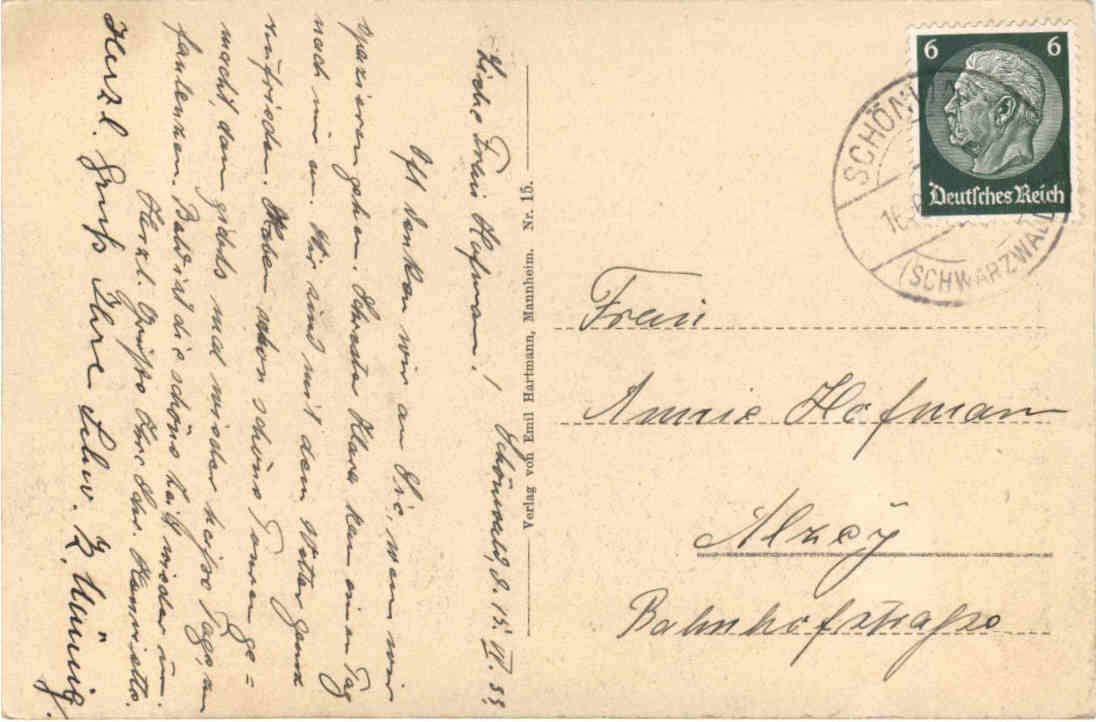 Schönwald, d. 15. VI. 39.
Liebe Frau Hofman!
Oft denken wir an Sie, wenn wir
spazieren gehen. Schwester Klara kam einen Tag
nach mir an. Wir sind mit dem Wetter ganz
zufrieden. Haben schon schöne Touren ge-
macht, dann gibts mal wieder heiße Tage, zu
faulenzen. Bald ist die schöne Zeit wieder um.
Herzl. Grüße Ihre Schw. Henriette.
Herzl. Gruß Ihre Schw.
Verlag von Emil Hartmann, Mannheim. Nr. 15.
6 6
Deutsches Reich
SCHÖN
(SCHWARZWALD
Frau
Annie Hofman
Alzey
Bahnhofstraße